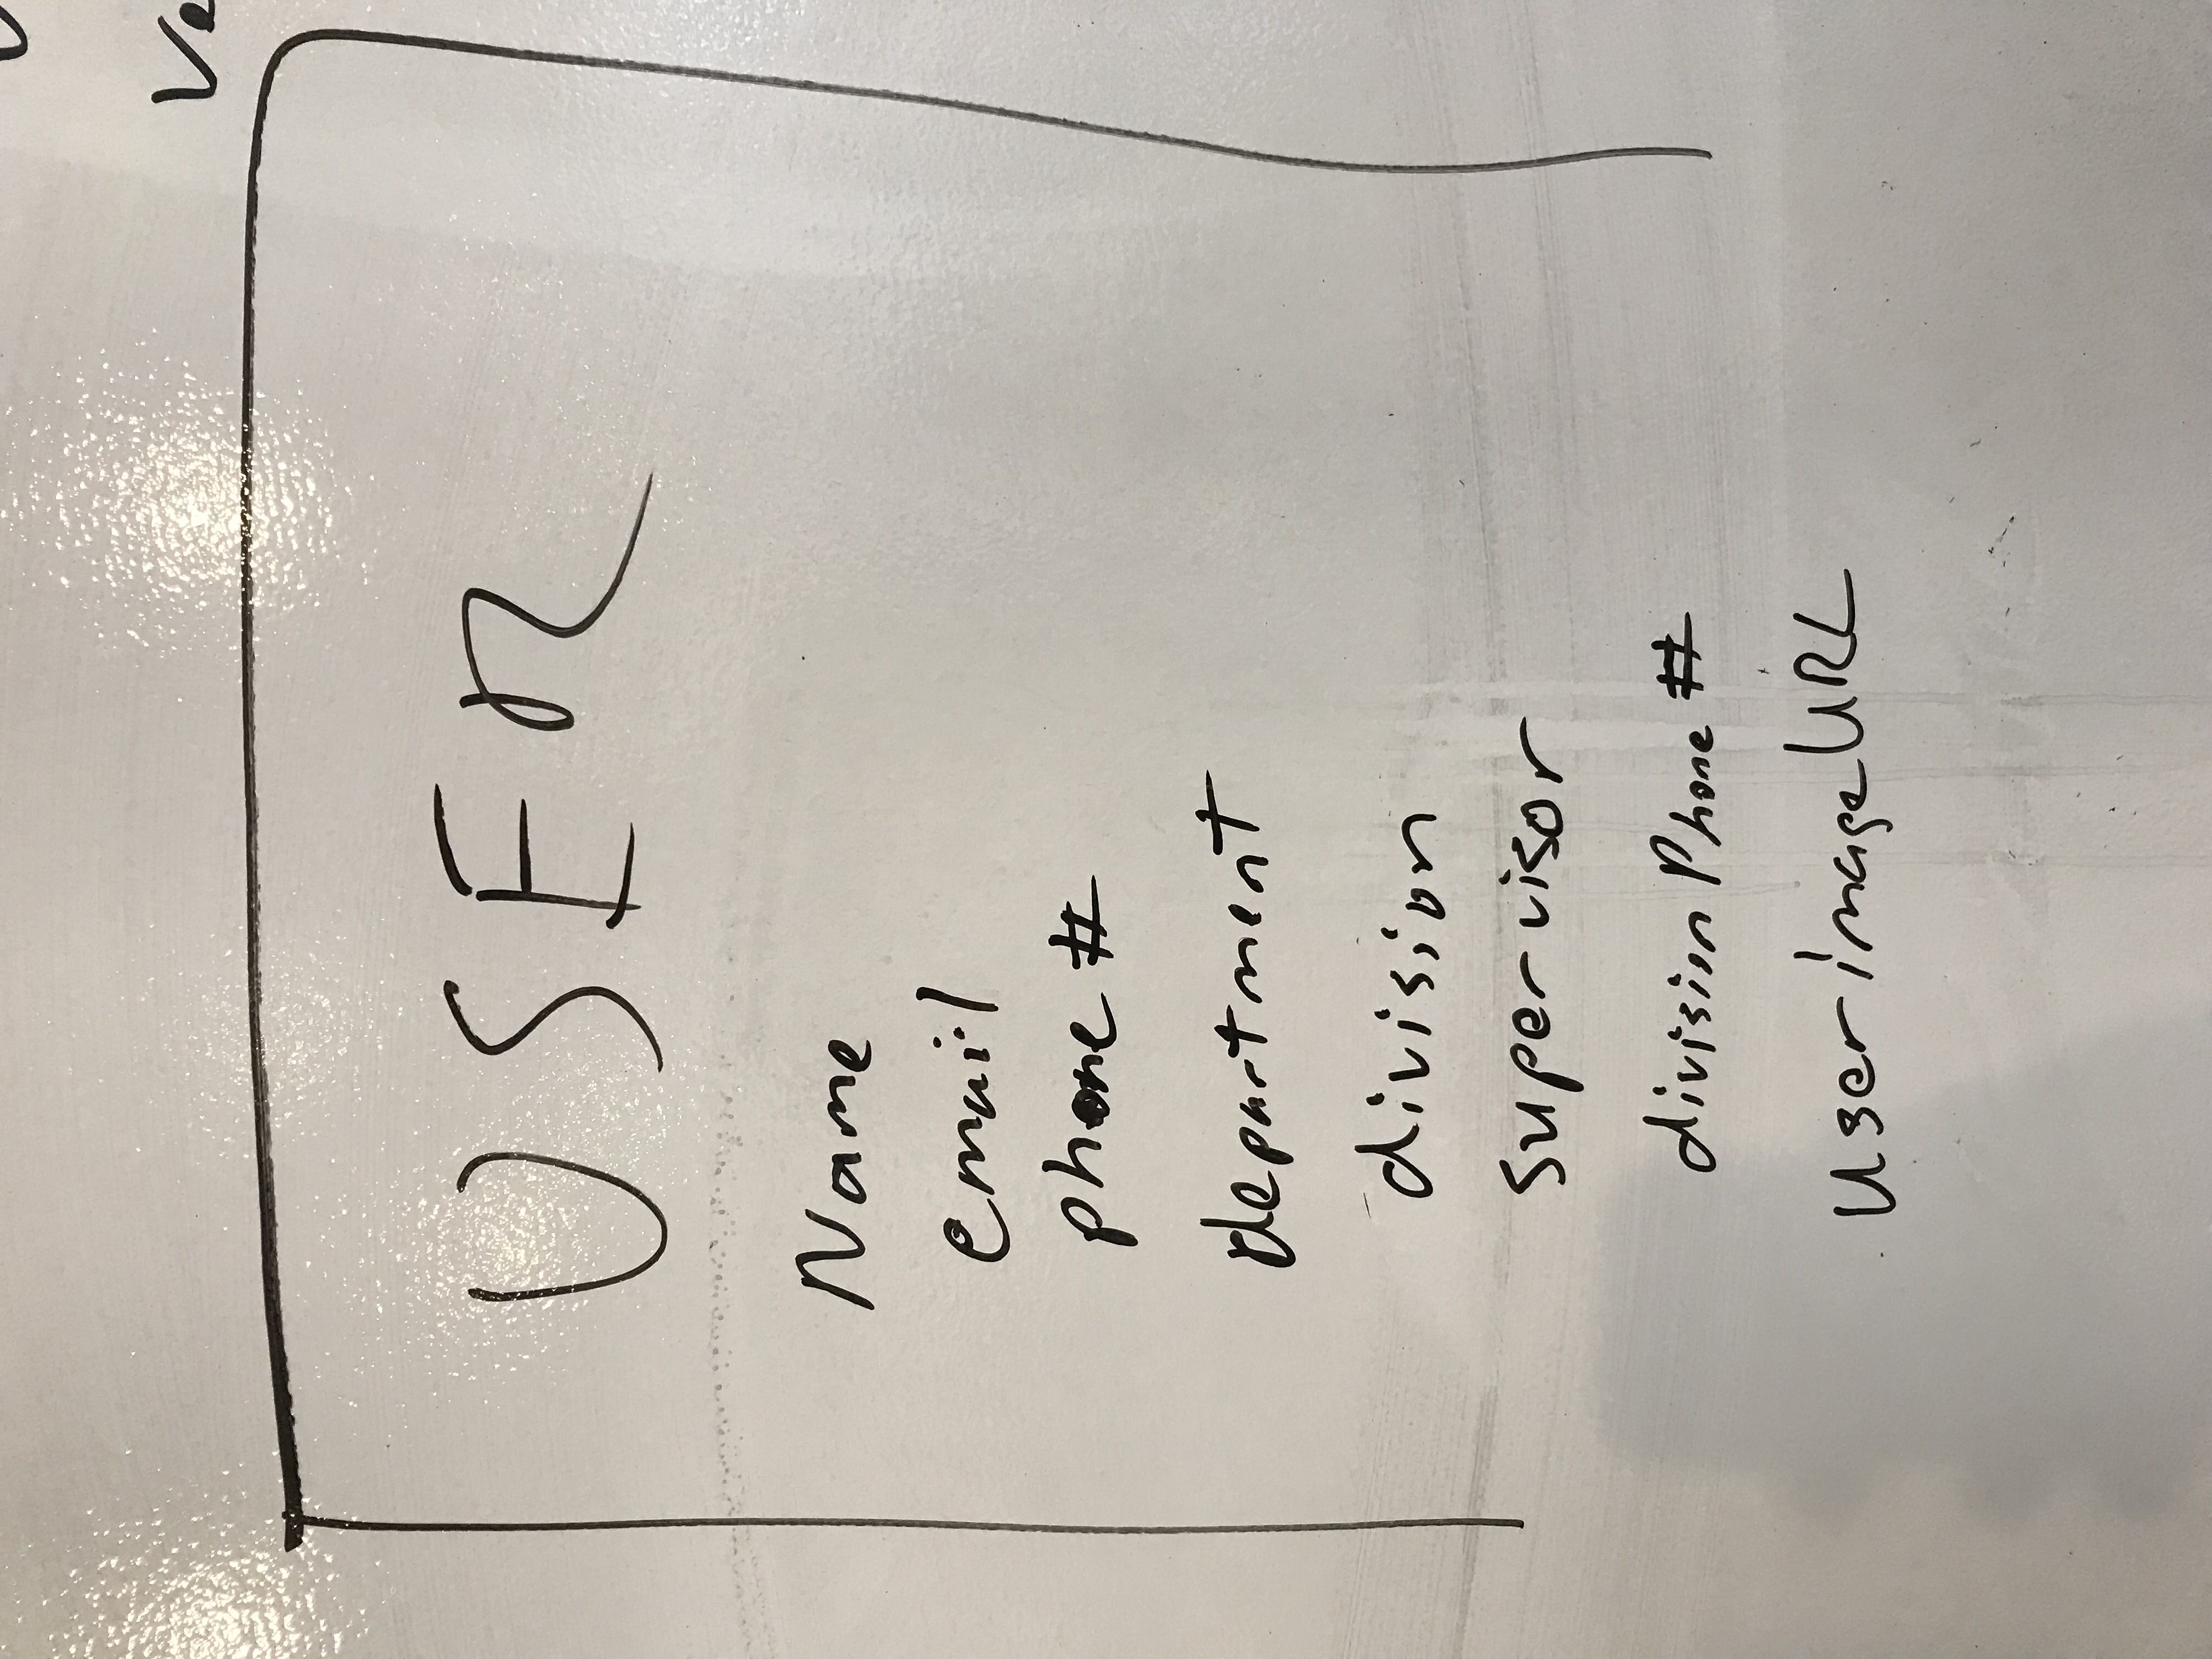 Ve
USER
Name
email
phone #
department
division
supervisor
division Phone #
user image URL